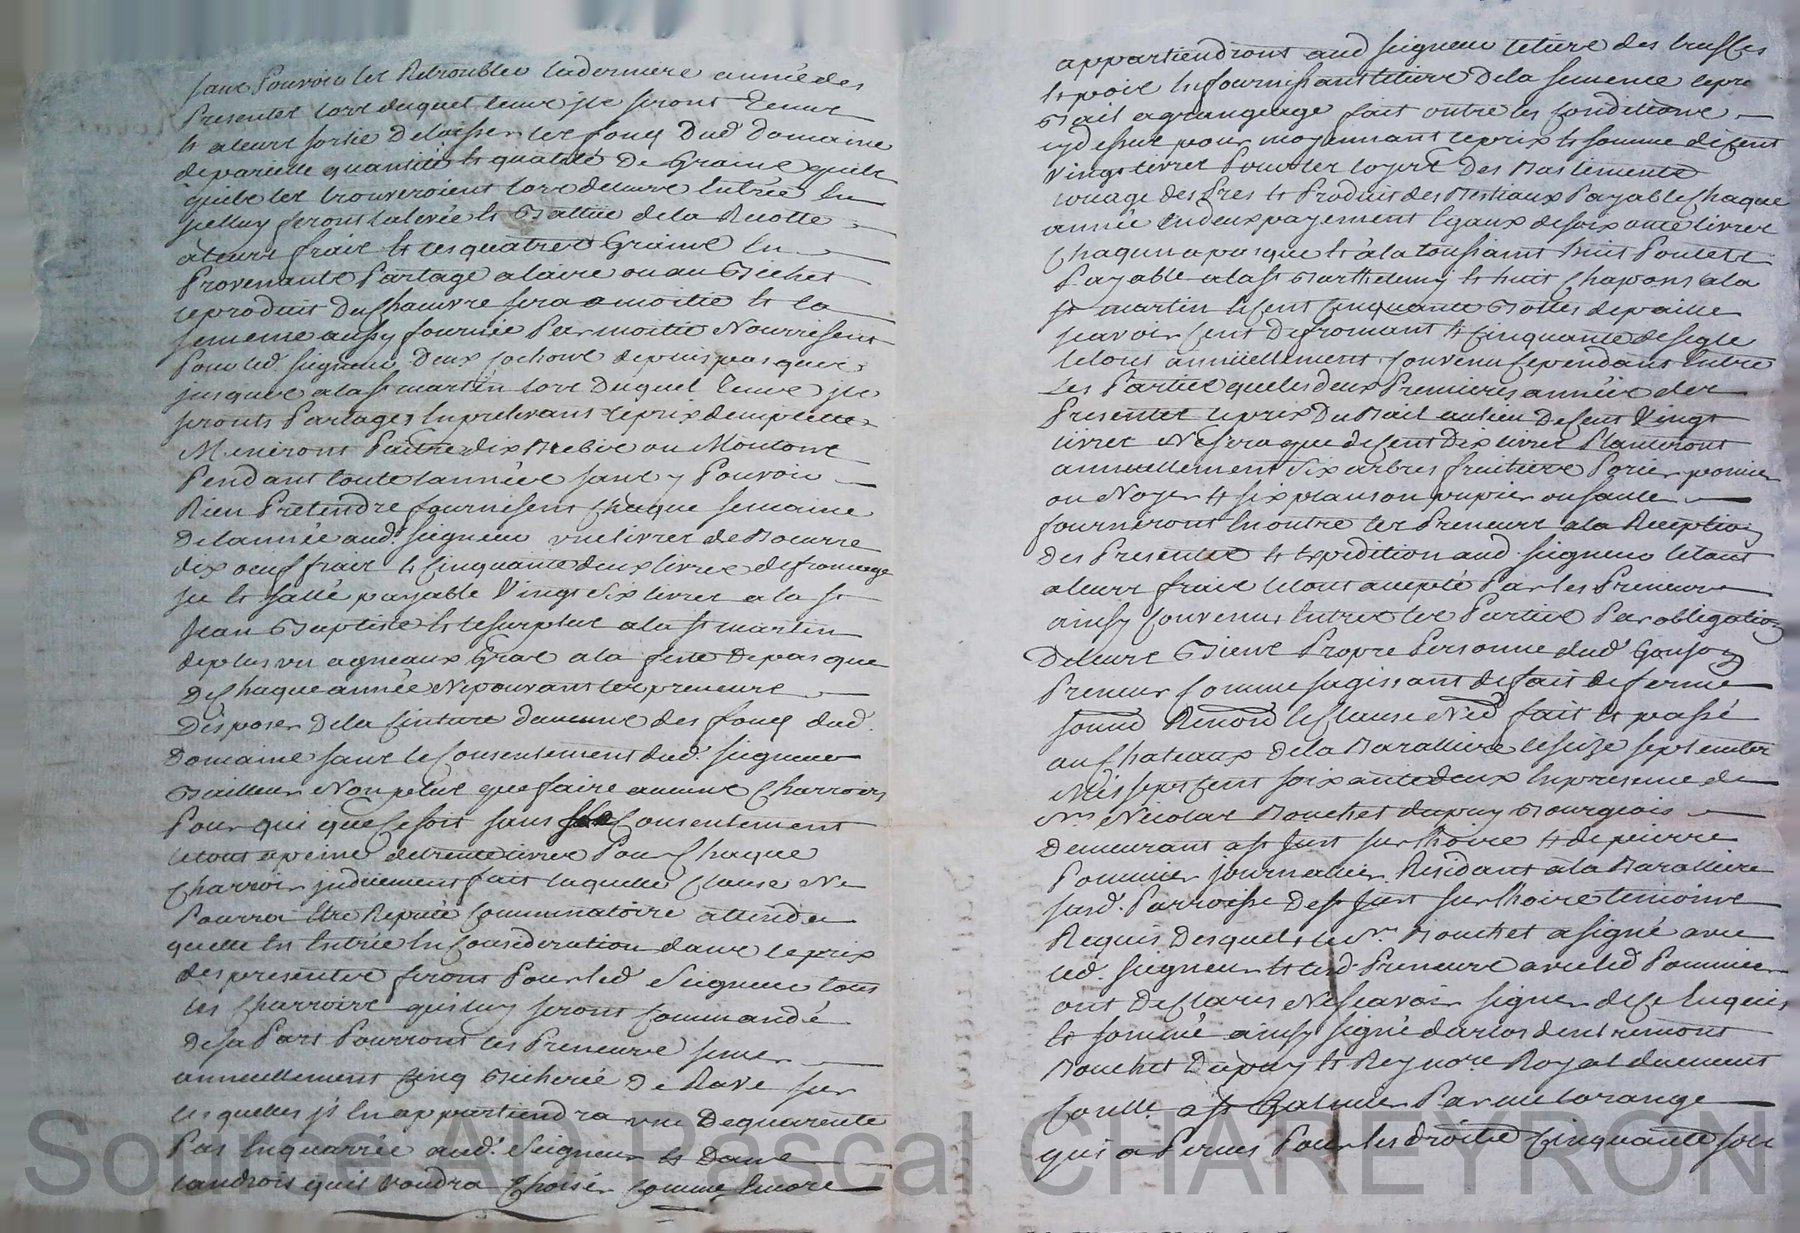 sans Pouvoir les Retroubler laderniere année des
Presentes lors duquel tems jls seront Tenus
et aleurs sortie Delaisser les fonds Dud. Domaine
depareille quantité et qualité De Graine quils
quils les trouveroient lors deleurs Entrée En
jcelluy feront lalevée et Battue dela Recolte
aleurs frais et lesquatres Graine En
Provenants Partagé alaire ou au Bichet
leproduit Duchanvre sera amoitié et la
semence aussy fournie Par moitié Nourrisent
Pour led. seigneur Deux Cochons depuis pasques
jusques alast martin lors Duquel Tems jls
seronts Partagés Enprelevans leprix demplette
Meneront Paitre dix Brebis ou Moutons
Pendant toute lannée sans y Pouvoir
Rien Pretendre fournisent Chaque semaine
Delannée aud. seigneur une livres de Beurre
dix oeuf frais et Cinquante deux livres defromage
sec et sallé payable Vingt six livres a la st
Jean Baptiste et lesurplus a la st martin
deplus un agneaux Gras a la feste Depasque
De Chaque année Nepouvant les preneurs
Disposer Dela Cinture daucune des fonds dud.
Domaine sans le Consentement dud. seigneur
Bailleur Non plus que faire aucuns Charrois
Pour qui que Cesoit sans Consentement
letout apeine detrente livres Pour Chaque
Charroir jnduement fait laquelle Clause Ne
Pourra Etre Reputé Comminatoire attendu
quelle Est Entrée En Consideration dans leprix
des presentes feront Pour led. Seigneur tous
les Charroirs quiluy seront Commandé
Desa Part Pourront les Preneurs semer
annuellement Cinq Bicherée De Rave sur
lesquelles jl En appartiendra une Dequarente
Pas Enquarrée aud. Seigneur et Dans
landrois quil voudra Choisir Comme Encore
appartiendront aud seigneur letiers des truffes
et pois Enfournissant letiers Dela semence lepre
Bail agrangeage fait outre les Conditions
cydessus pour moyennant leprix et somme deCent
vingt livres Pour les loyers Des Bastiments
louage des Prés et Produit des Bestiaux Payable Chaque
année Endeux payement Egaux desoixante livres
Chaqun apasque et à la toussaint huit Poulets
Payable a la st Barthelemy et huit Chapons ala
st martin et Cent Cinquante Bottes depaille
scavoir Cent Defromant et Cinquante deseigle
letout annuellement Convenu Cependant Entre
Les Parties queles deux Premieres année des
Presentes leprix Du Bail aulieu DeCent Vingt
livres Nesera que deCent Dix livres Planteront
annuellement six arbres fruitiers Porier pomier
ou Noyer et six planson pupier ou saule
fourneront En outre les Preneurs ala Reception
Des Presentes et Expedition aud. seigneur letout
aleurs frais letout accepté Par les Preneurs
ainsy Convenu Entre les Parties Par obligation
Deleurs Biens Propre Personne dud. Gonson
Preneur Comme sagissant de fait de ferme
soumd Renond leClause Ned. fait et passé
au Chateaux Dela Baralliere leseize septembre
Mil sept Cent soixante deux Enpresence de
Mrs Nicolas Bouchet dupuy Bourgeois
Demeurant ast Just sur Loire et de pierre
Pommier journalier Residant ala Baralliere
susd. Parroisse De st Just sur Loire temoins
Requis Desquels led. Sr. Bouchet asigné avec
led. seigneur et lesd. Preneurs avec led Pommier
ont Declarés Nescavoir signer deCe Enquis
et sommé ainsy signé darlos dentremont
Bouchet Dupuy et Reynore Royal duement
Conlle. a st Galmier Par me Lorange
qui a Perçus Pour les droits Cinquante sou
Source AD Pascal CHAREYRON